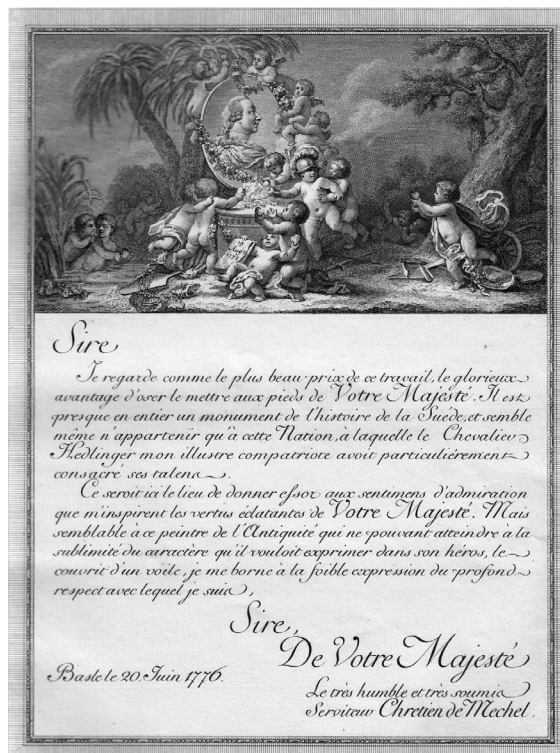 Sire
Je regarde comme le plus beau prix de ce travail, le glorieux
avantage d'oser le mettre aux pieds de Votre Majesté. Il est
presque en entier un monument de l'histoire de la Suède, et semble
même n'appartenir qu'à cette Nation, à laquelle le Chevalier
Hedlinger mon illustre compatriote avoit particuliérement
consacré ses talens.
Ce seroit ici le lieu de donner essor aux sentimens d'admiration
que m'inspirent les vertus éclatantes de Votre Majesté. Mais
semblable à ce peintre de l'Antiquité qui ne pouvant atteindre à la
sublimité du caractère qu'il vouloit exprimer dans son héros, le
couvrit d'un voile, je me borne à la foible expression du profond
respect avec lequel je suis,
Sire,
De Votre Majesté
Basle le 20. Juin 1776.
Le très humble et très soumis
Serviteur Chretien de Mechel.